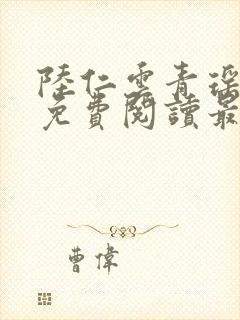 陸仁雲青瑤
免費閱讀最
曹偉